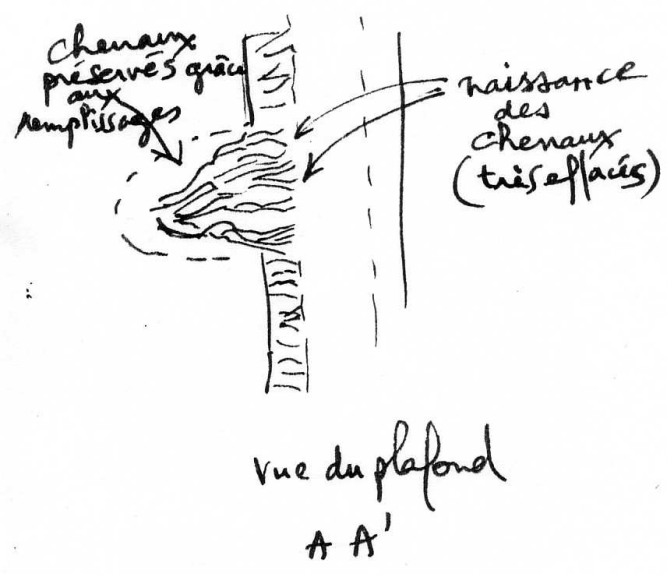 chenaux
préservés grâce
aux
remplissages
naissance
des
chenaux
(très effacés)
vue du plafond
A A'